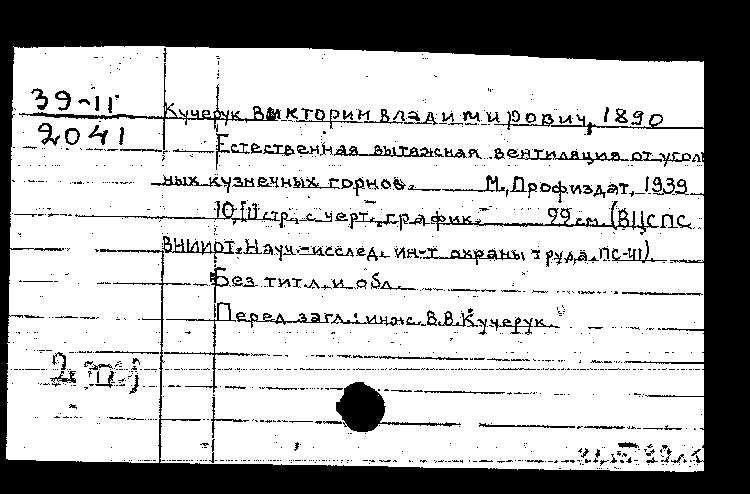 39-II
2041
Кучерук Викторин Владимирович, 1890
Естественная вытяжная вентиляция от уголь
ных кузнечных горнов. М., Профиздат, 1939
10, II стр., с черт., график. 22 см (ВЦСПС
ВНИИОТ. Науч.-исслед. ин-т охраны труда. ПС-41).
Без тит. л. и обл.
Перед загл.: инж. В. В. Кучерук.